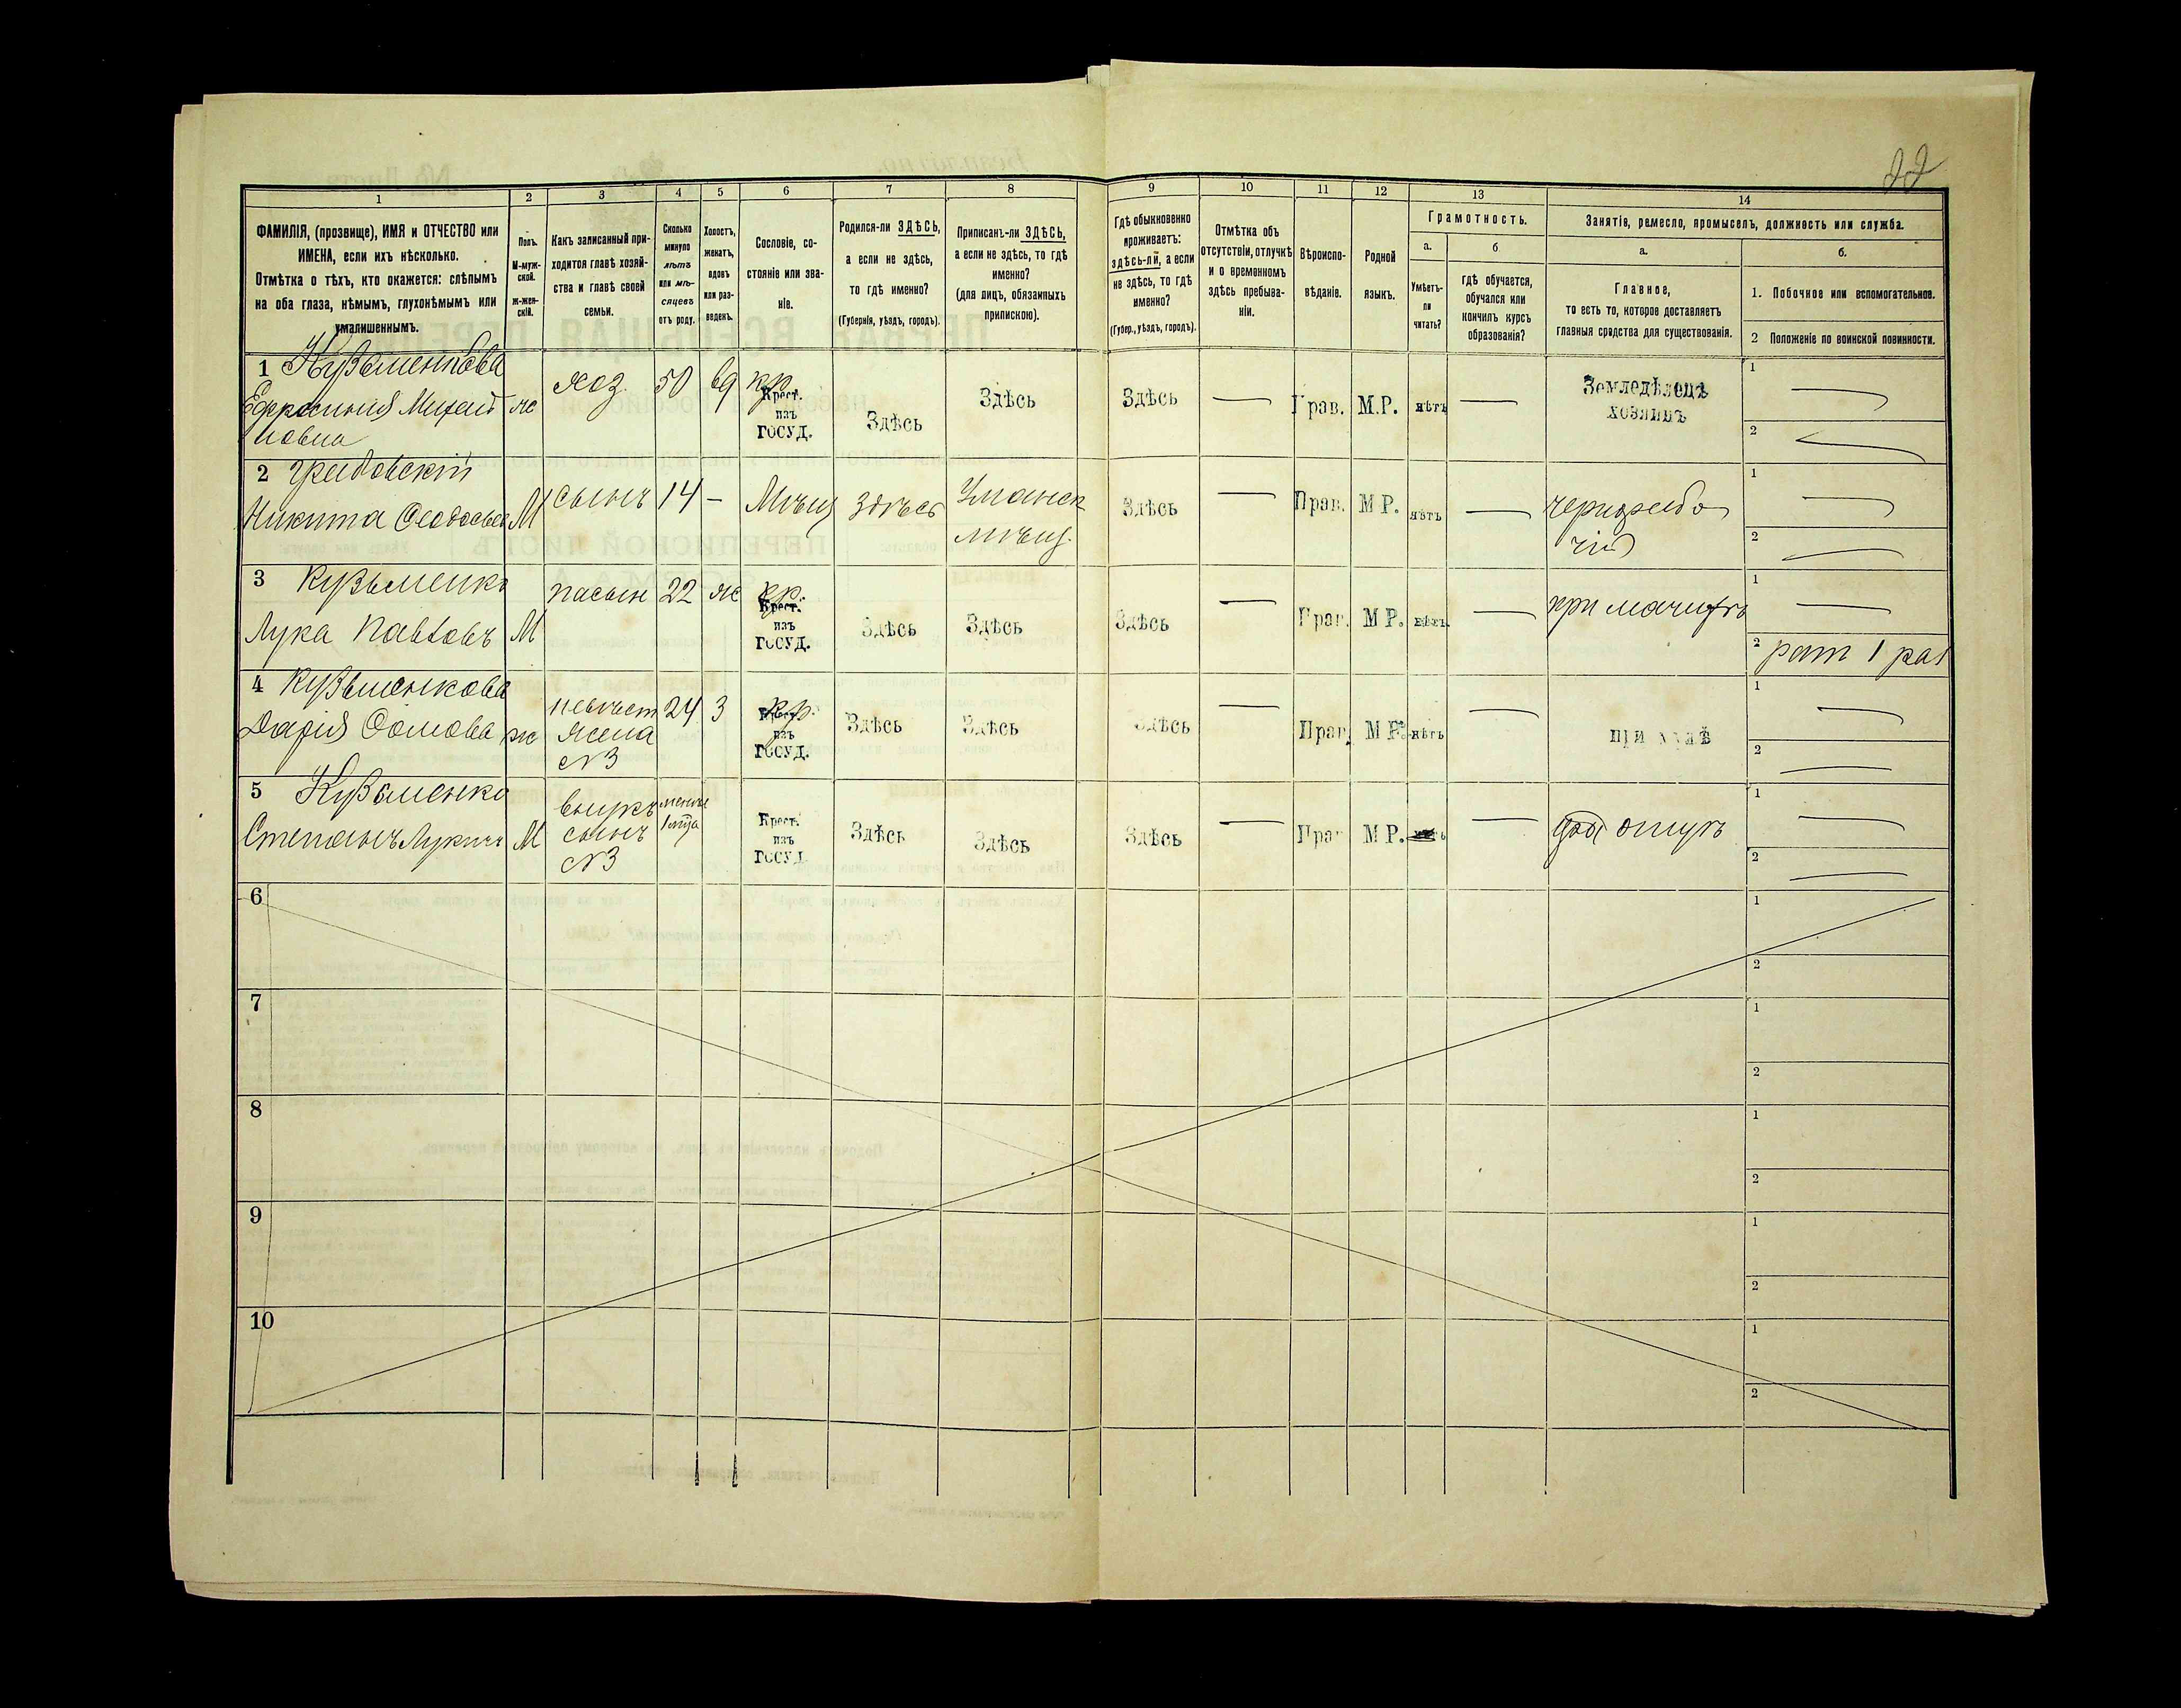 22
1 2 3 4 5 6 7 8 9 10 11 12 13 14
ФАМИЛІЯ, (прозвище), ИМЯ и ОТЧЕСТВО или
ИМЕНА, если ихъ нѣсколько.
Отмѣтка о тѣхъ, кто окажется: слѣпымъ
на оба глаза, нѣмымъ, глухонѣмымъ или
умалишеннымъ.
Полъ.
М-муж-
ской.
ж-жен-
скій.
Какъ записанный при-
ходится главѣ хозяй-
ства и главѣ своей
семьи.
Сколько
минуло
лѣтъ
или мѣ-
сяцевъ
отъ роду.
Холостъ,
женатъ,
вдовъ
или раз-
веденъ.
Сословіе, со-
стояніе или зва-
ніе.
Родился-ли ЗДѢСЬ,
а если не здѣсь,
то гдѣ именно?
(Губернія, уѣздъ, городъ).
Приписанъ-ли ЗДѢСЬ,
а если не здѣсь, то гдѣ
именно?
(для лицъ, обязанныхъ
припискою).
Гдѣ обыкновенно
проживаетъ:
здѣсь-ли, а если
не здѣсь, то гдѣ
именно?
(Губер., уѣздъ, городъ).
Отмѣтка объ
отсутствіи, отлучкѣ
и о временномъ
здѣсь пребыва-
ніи.
Вѣроиспо-
вѣданіе.
Родной
языкъ.
Грамотность.
а.
Умѣетъ-
ли
читать?
б.
гдѣ обучается,
обучался или
кончилъ курсъ
образованія?
Занятіе, ремесло, промыселъ, должность или служба.
а.
Главное,
то есть то, которое доставляетъ
главныя средства для существованія.
б.
1. Побочное или вспомогательное.
2 Положеніе по воинской повинности.
1 Кузьменкова
Ефросинія Михай
ловна
ж
хоз.
50
вд
кр.
Крест.
изъ
госуд.
Здѣсь
Здѣсь
Здѣсь
Прав.
М.Р.
нѣтъ
Земледѣлецъ
хозяинъ
1
2
2
Никита
М
сынъ
14 –
Мѣщ
Здѣсь
Уманск
мѣщ.
Здѣсь
Прав.
М Р.
нѣтъ
чернорабо
чій
1
2
3 Кузьменко
Лука Павловъ
М
пасын
22
ж
кр.
Крест.
изъ
госуд.
Здѣсь
Здѣсь
Здѣсь
Прав.
М Р.
нѣтъ
при мачихѣ
1
2 рат 1 раз
4 Кузьменкова
Дарія Ѳомова
ж
невѣст
жена
№3
24
З
кр.
Крест.
изъ
госуд.
Здѣсь
Здѣсь
Здѣсь
Прав.
М Р.
нѣтъ
при мужѣ
1
2
5 Кузьменко
Степанъ Лукичъ
М
внукъ
сынъ
№3
менѣе
1 мца
Крест.
изъ
госуд
Здѣсь
Здѣсь
Здѣсь
Прав
М Р.
отцѣ
1
2
6
1
2
7
1
2
8
1
2
9
1
2
10
1
2